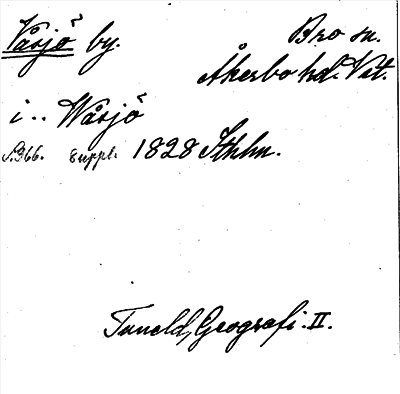 Våsjö by. Bro sn.
Åkerbo hd. Vst.
i .. Wåsjö
S. 366. suppl. 1828 Sthlm.
Tuneld, Geografi. II.